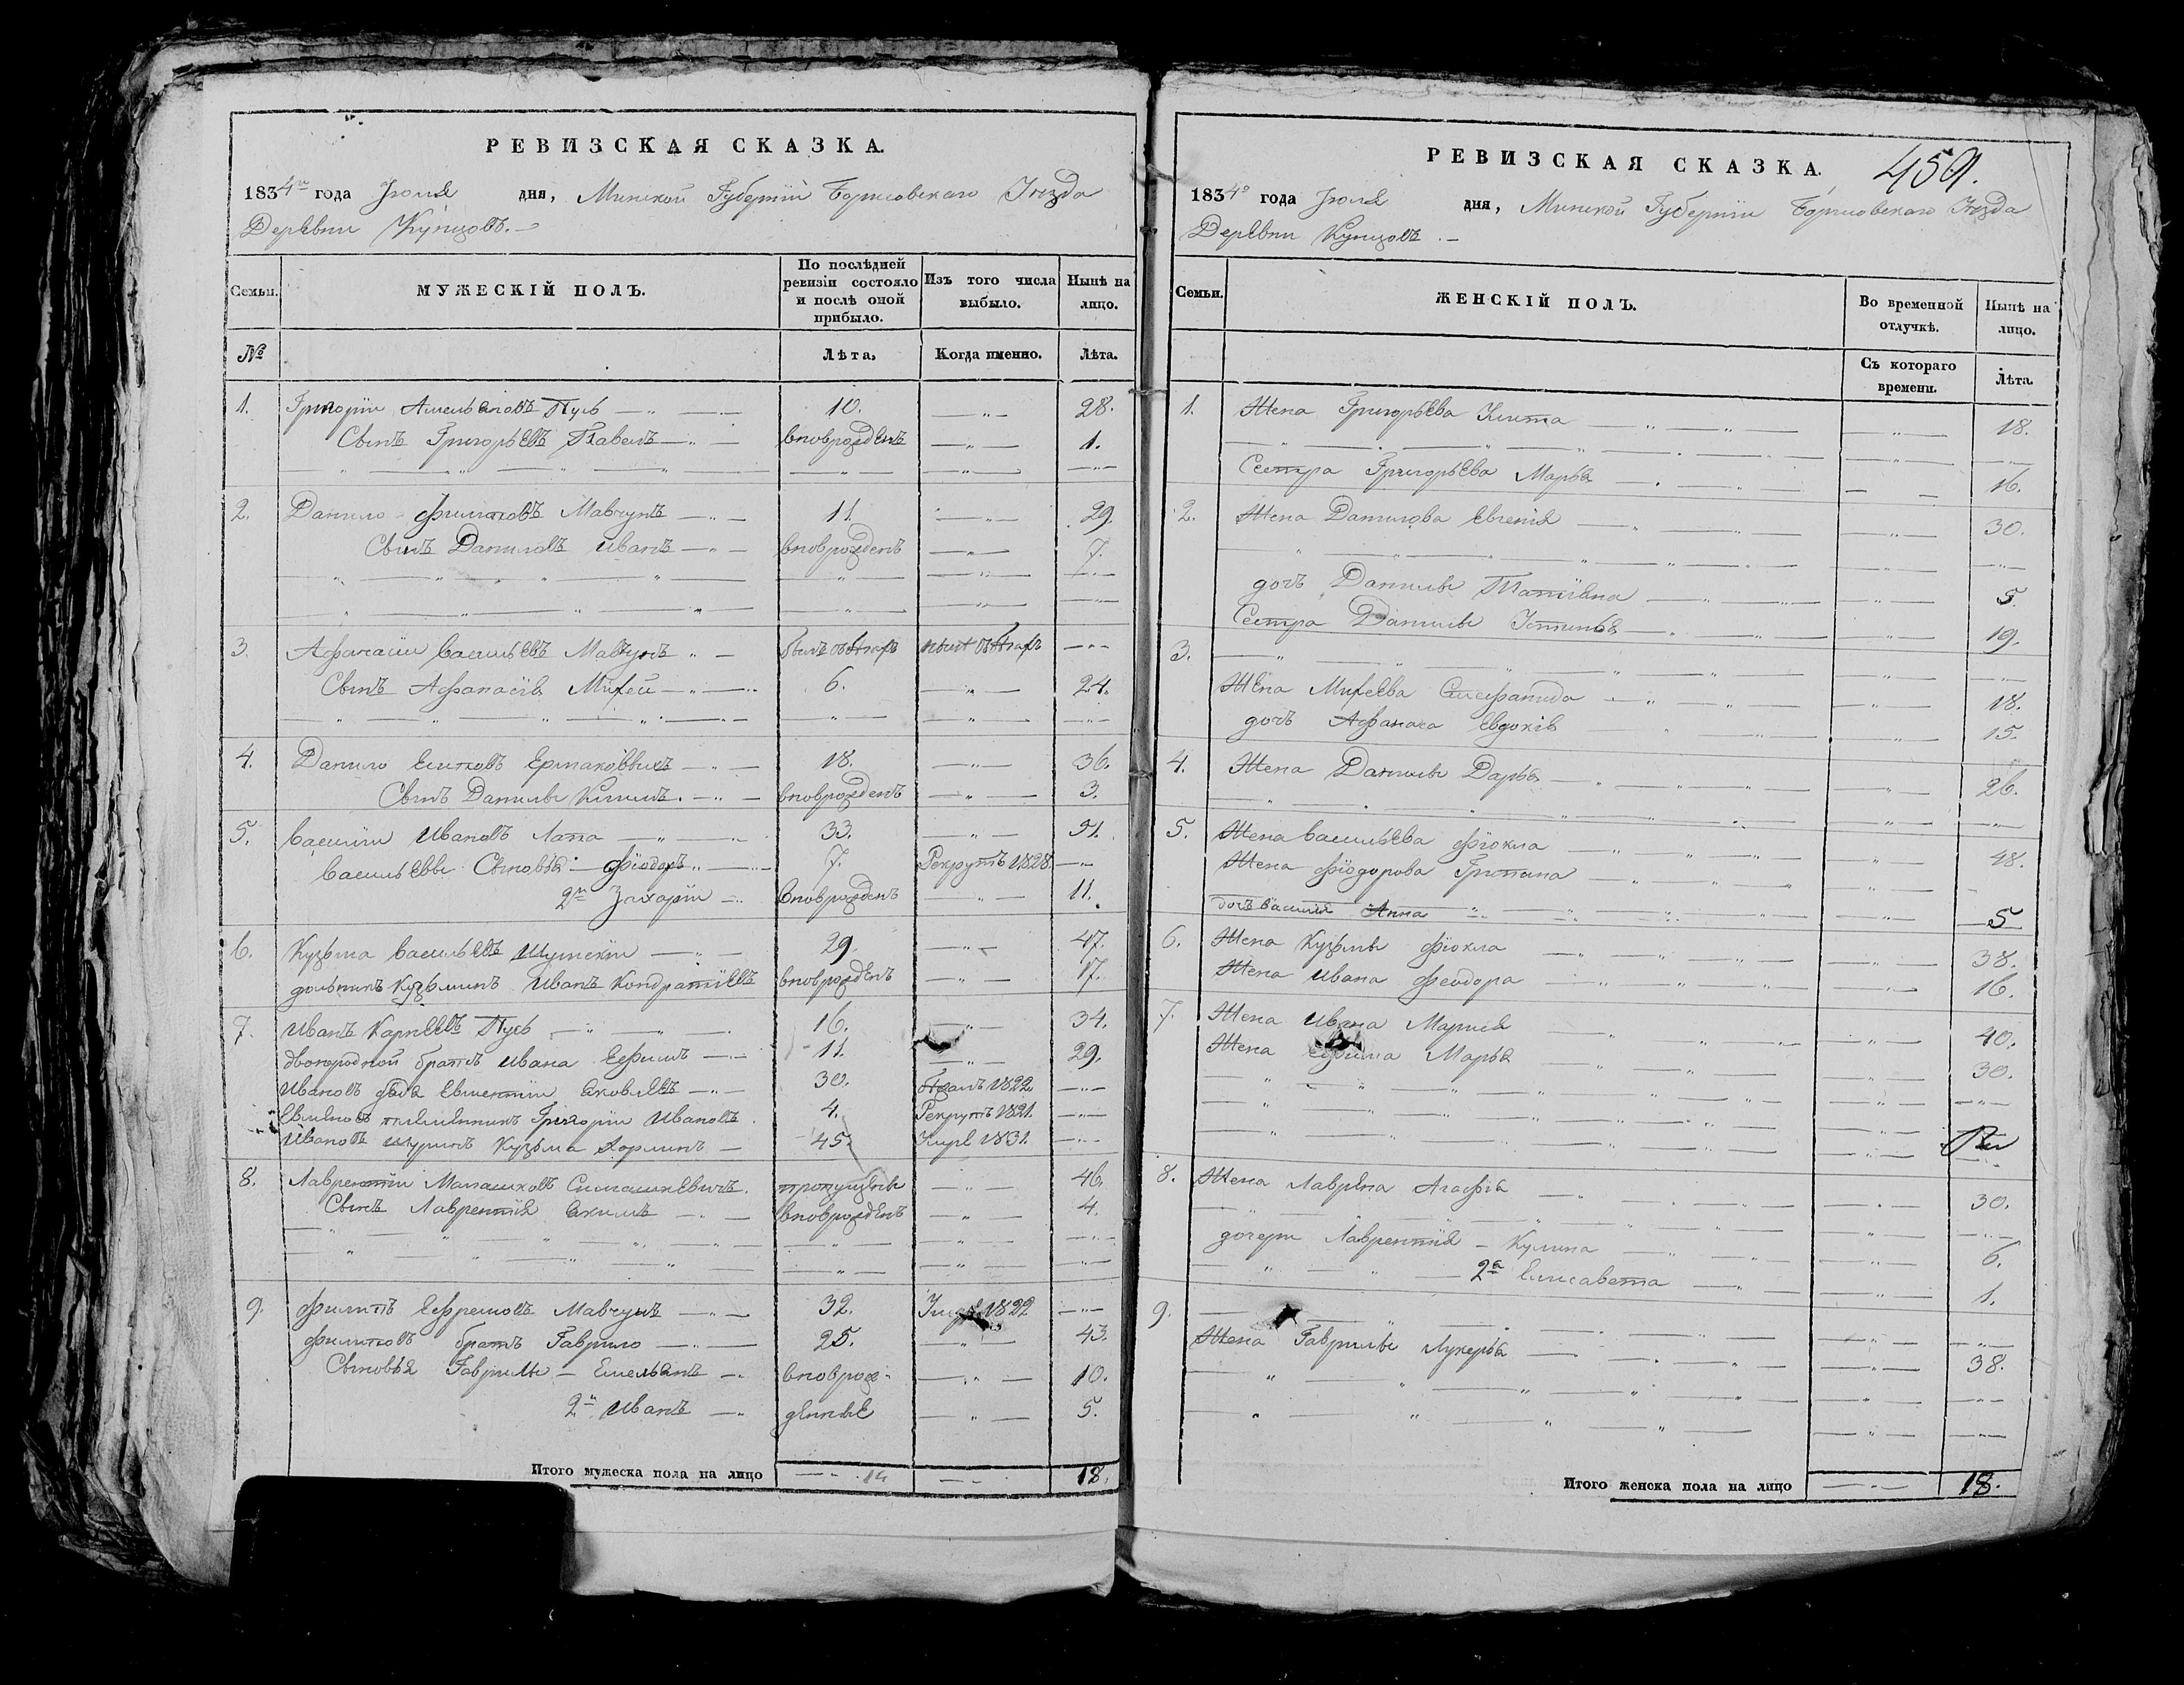 РЕВИЗСКАЯ СКАЗКА.
1834го года Іюля дня, Минской Губерніи Борисовскаго Уѣзда
Деревни Купцовъ.
Семьи.
МУЖЕСКІЙ ПОЛЪ.
По послѣдней ревизіи состояло и послѣ оной прибыло.
Изъ того числа выбыло.
Нынѣ на лицо.
№
Лѣта.
Когда именно.
Лѣта.
1. Григорій Амельяновъ Пусь 10. 28.
Сынъ Григорьевъ Павелъ вноврожденъ 1.
2. Данило Филиповъ Мавчунъ 11. 29.
Сынъ Даниловъ Иванъ вноврожденъ 7.
3. Афанасій Васильевъ Мавчунъ
Сынъ Афанасія Михей 6. 24.
4. Данило Ермаковичъ 18. 36.
Сынъ Данилы вноврожденъ 3.
5. Василій Ивановъ Лапа 33. 51.
Васильевы Сыновья Фіодоръ 7. Рекрутъ 1828.
2й Захарій вноврожденъ 11.
6. Кузьма Васильевъ 29. 47.
дольникъ Кузьминъ Иванъ Кондратіевъ вноврожденъ 17.
7. Иванъ Карпеевъ Пусь 16. 34.
двоюродной братъ Ивана Ефимъ 11. 29.
Ивановъ дядя Евментій Яковлевъ 30. 1822
племянникъ Григорій Ивановъ 4. Рекрутъ 1821.
Ивановъ шуринъ Кузьма 45. Умре 1831.
8. Лаврентій Симашкевичъ. пропущены 46.
Сынъ Лаврентія Якимъ вноврожденъ 4.
9. Филипъ Ефремовъ Мавчунъ 32. Умре 1822
Филиповъ братъ Гаврило 25. 43.
Сыновья Гаврилы Емельянъ вноврож- 10.
2й Иванъ денные 5.
Итого мужеска пола на лицо 18.
РЕВИЗСКАЯ СКАЗКА.
459.
1834го года Іюля дня, Минской Губерніи Борисовскаго Уѣзда
Деревни Купцовъ
Семьи.
ЖЕНСКІЙ ПОЛЪ.
Во временной отлучкѣ.
Нынѣ на лицо.
Съ котораго времени.
Лѣта.
1. Жена Григорьева 18.
Сестра Григорьева Марья 16.
2. Жена Данилова Евгенія 30.
дочь Данилы Татіяна 5.
Сестра Данилы Устинья 19.
3.
Жена Михеева 18.
дочь Афанаса Евдокія 15.
4. Жена Данилы Дарья 26.
5. Жена Васильева Фіокла 48.
Жена Фіодорова Грипина
дочь Василія Анна 5
6. Жена Кузьмы Фіокла 38.
Жена Ивана Феодора 16.
7. Жена Ивана Марися 40.
Жена Ефима Марья 30.
8. Жена Лаврена Агафія 30.
дочери Лаврентія Кулина 6.
2я Елисавета 1.
9.
Жена Гаврилы Лукерья 38.
Итого женска пола на лицо 18.